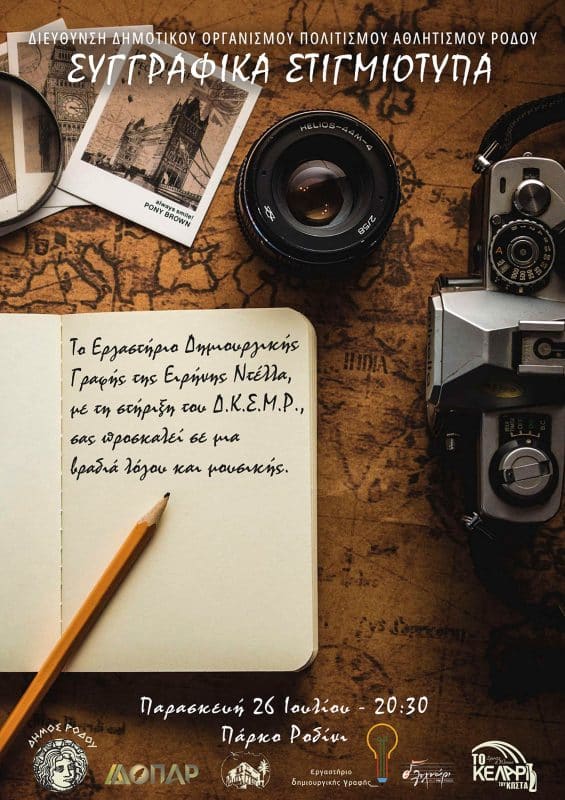 ΔΙΕΥΘΥΝΣΗ ΔΗΜΟΤΙΚΟΥ ΟΡΓΑΝΙΣΜΟΥ ΠΟΛΙΤΙΣΜΟΥ ΑΘΛΗΤΙΣΜΟΥ ΡΟΔΟΥ
ΣΥΓΓΡΑΦΙΚΑ ΣΤΙΓΜΙΟΤΥΠΑ
always smile!
PONY BROWN
HELIOS-44M-4
2/58
A
INDIA
Το Εργαστήριο Δημιουργικής
Γραφής της Ειρήνης Ντέλλα,
με τη στήριξη του Δ.Κ.Ε.Μ.Ρ.,
σας προσκαλεί σε μια
βραδιά λόγου και μουσικής.
Παρασκευή 26 Ιουλίου - 20:30
Πάρκο Ροδίνι
ΔΗΜΟΣ ΡΟΔΟΥ
ΔΟΠΑΡ
Εργαστήριο
δημιουργικής Γραφής
ΤΟ
ΚΕΛΑΡΙ
ΤΟΥ ΚΩΣΤΑ